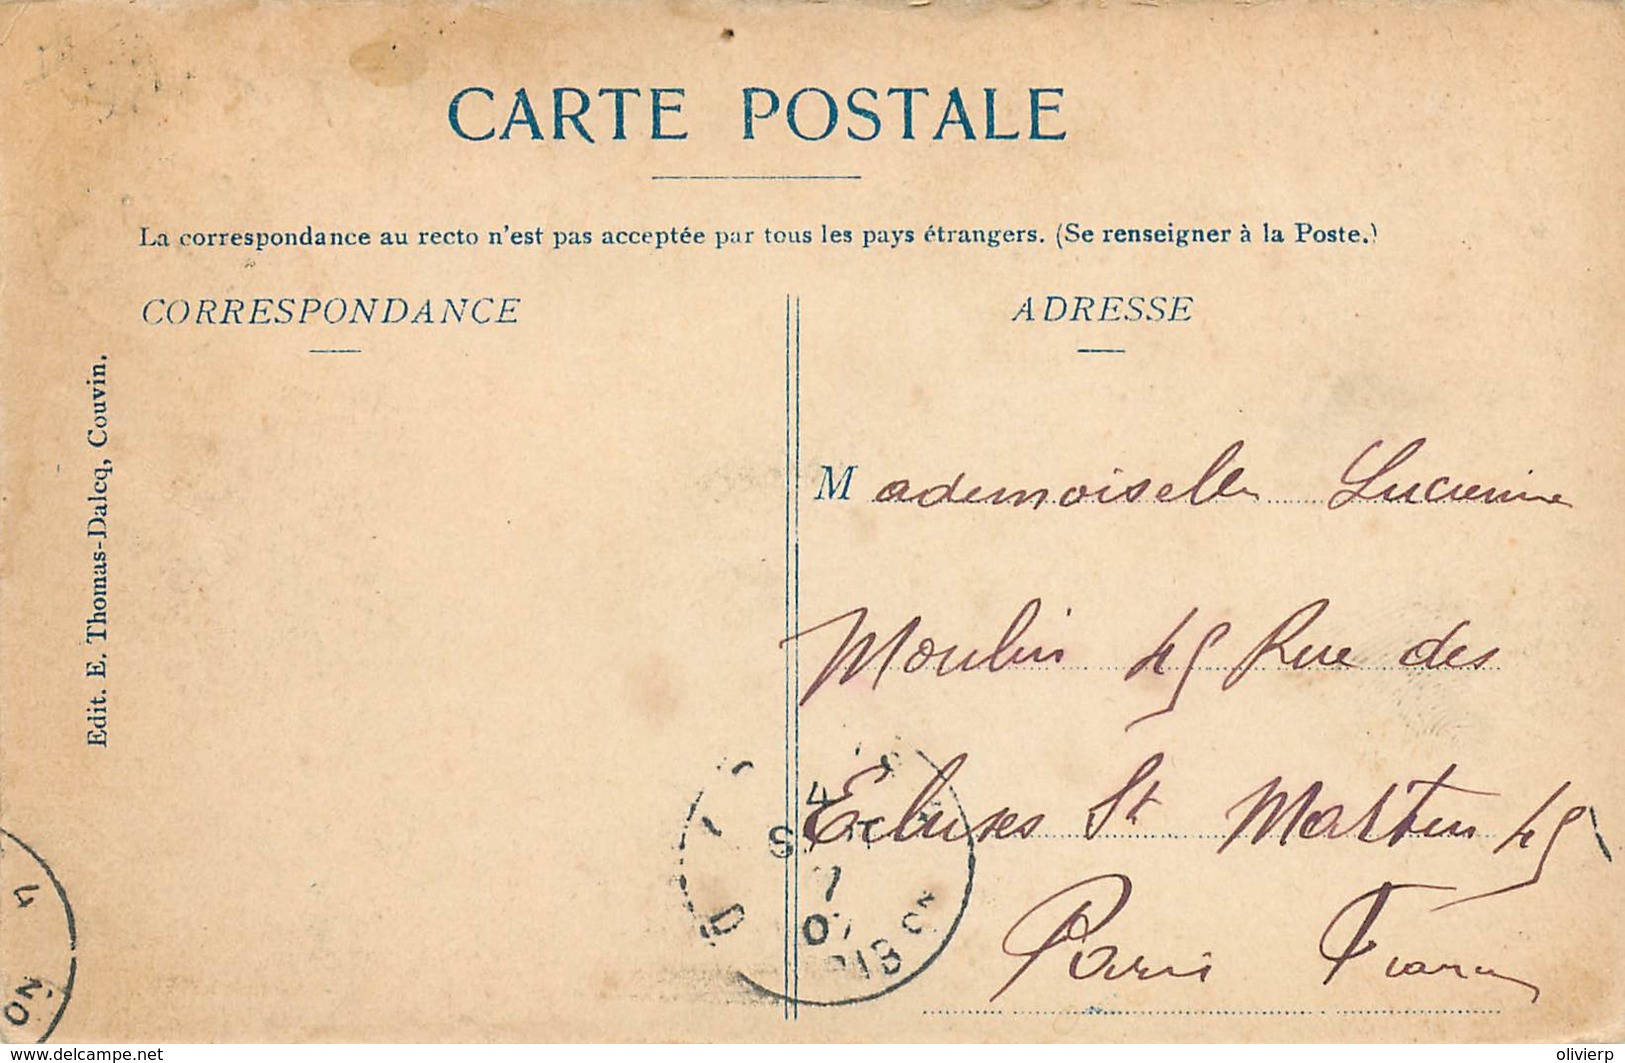 CARTE POSTALE
La correspondance au recto n'est pas acceptée par tous les pays étrangers. (Se renseigner à la Poste.)
CORRESPONDANCE
ADRESSE
Edit. E. Thomas-Dalcq, Couvin.
Mademoiselle Lucienne
Moulin 45 Rue des
Écluses St Martin 45
Paris France
4
7
4
www.delcampe.net
olivierp